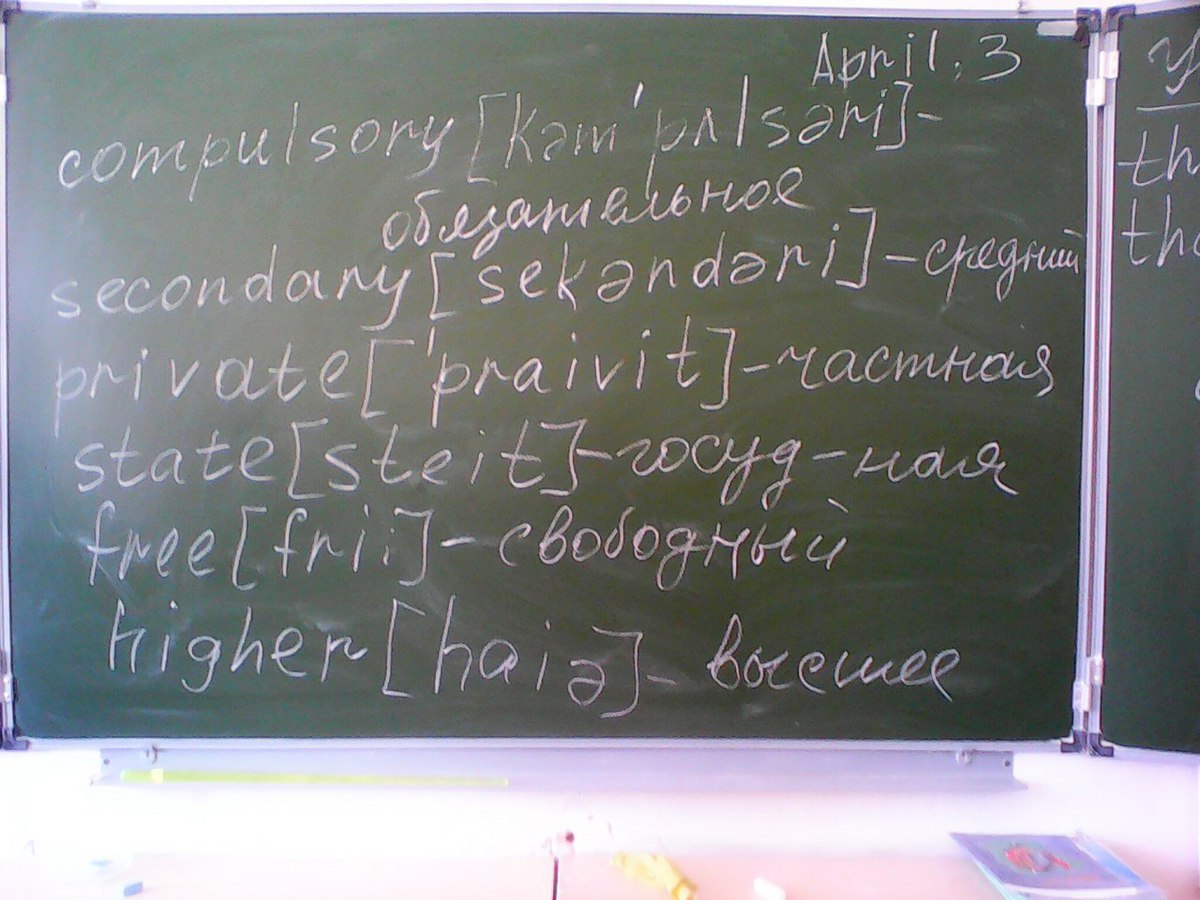 April. 3
compulsory [kəm'pʌlsəri]-
обязательное
secondary [sekəndəri]-средний
private ['praivit]-частная
state [steit]-госуд-ная
free [fri:]-свободный
higher [haiə]-высшее